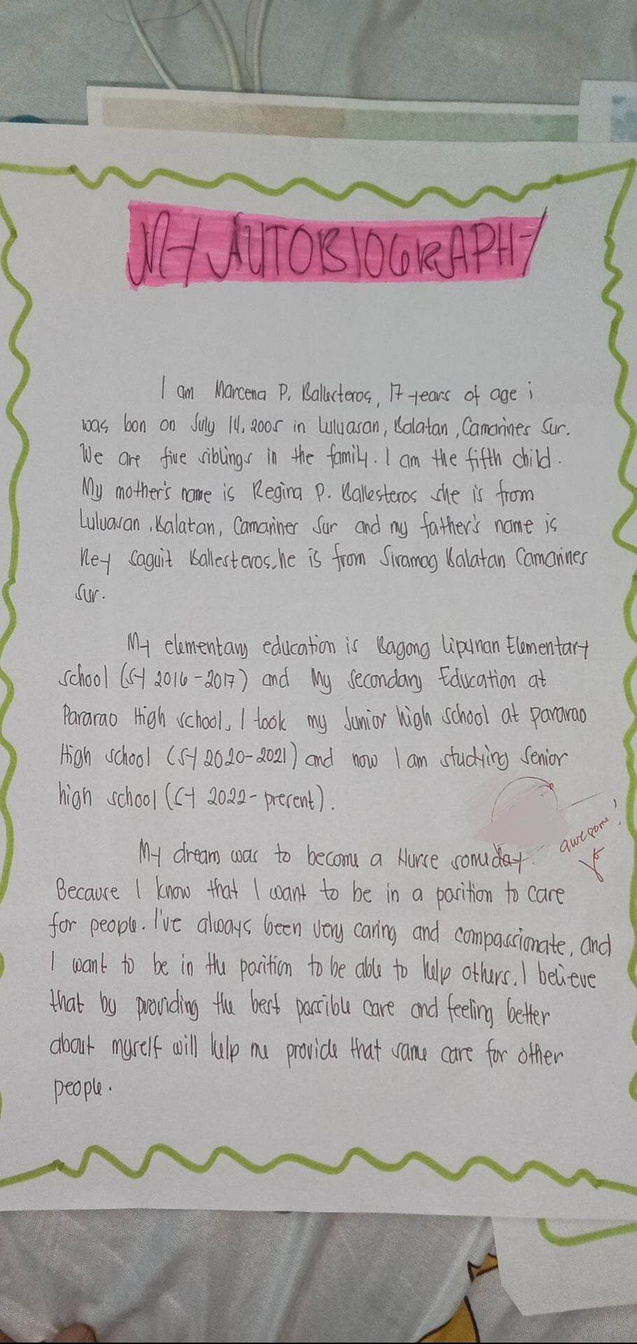 MY AUTOBIOGRAPHY
I am Marcena P. Ballesteros, 17 years of age i
was bon on July 14, 2005 in Luluasan, Balatan, Camarines Sur.
We are five siblings in the family. I am the fifth child.
My mother's name is Regina P. Ballesteros she is from
Luluasan, Balatan, Camarines Sur and my father's name is
Rey Saguit Ballesteros, he is from Siramag Balatan Camarines
Sur.
My elementary education is Bagong Lipunan Elementary
school (SY 2016-2017) and My Secondary Education at
Pararao High school, I took my Junior high school at pararao
High school (SY 2020-2021) and now I am studying Senior
high school (SY 2022-present).
awesome!
My dream was to become a Nurse someday.
Because I know that I want to be in a position to care
for people. I've always been very caring and compassionate, and
I want to be in the position to be able to help others. I believe
that by providing the best possible care and feeling better
about myself will help me provide that same care for other
people.